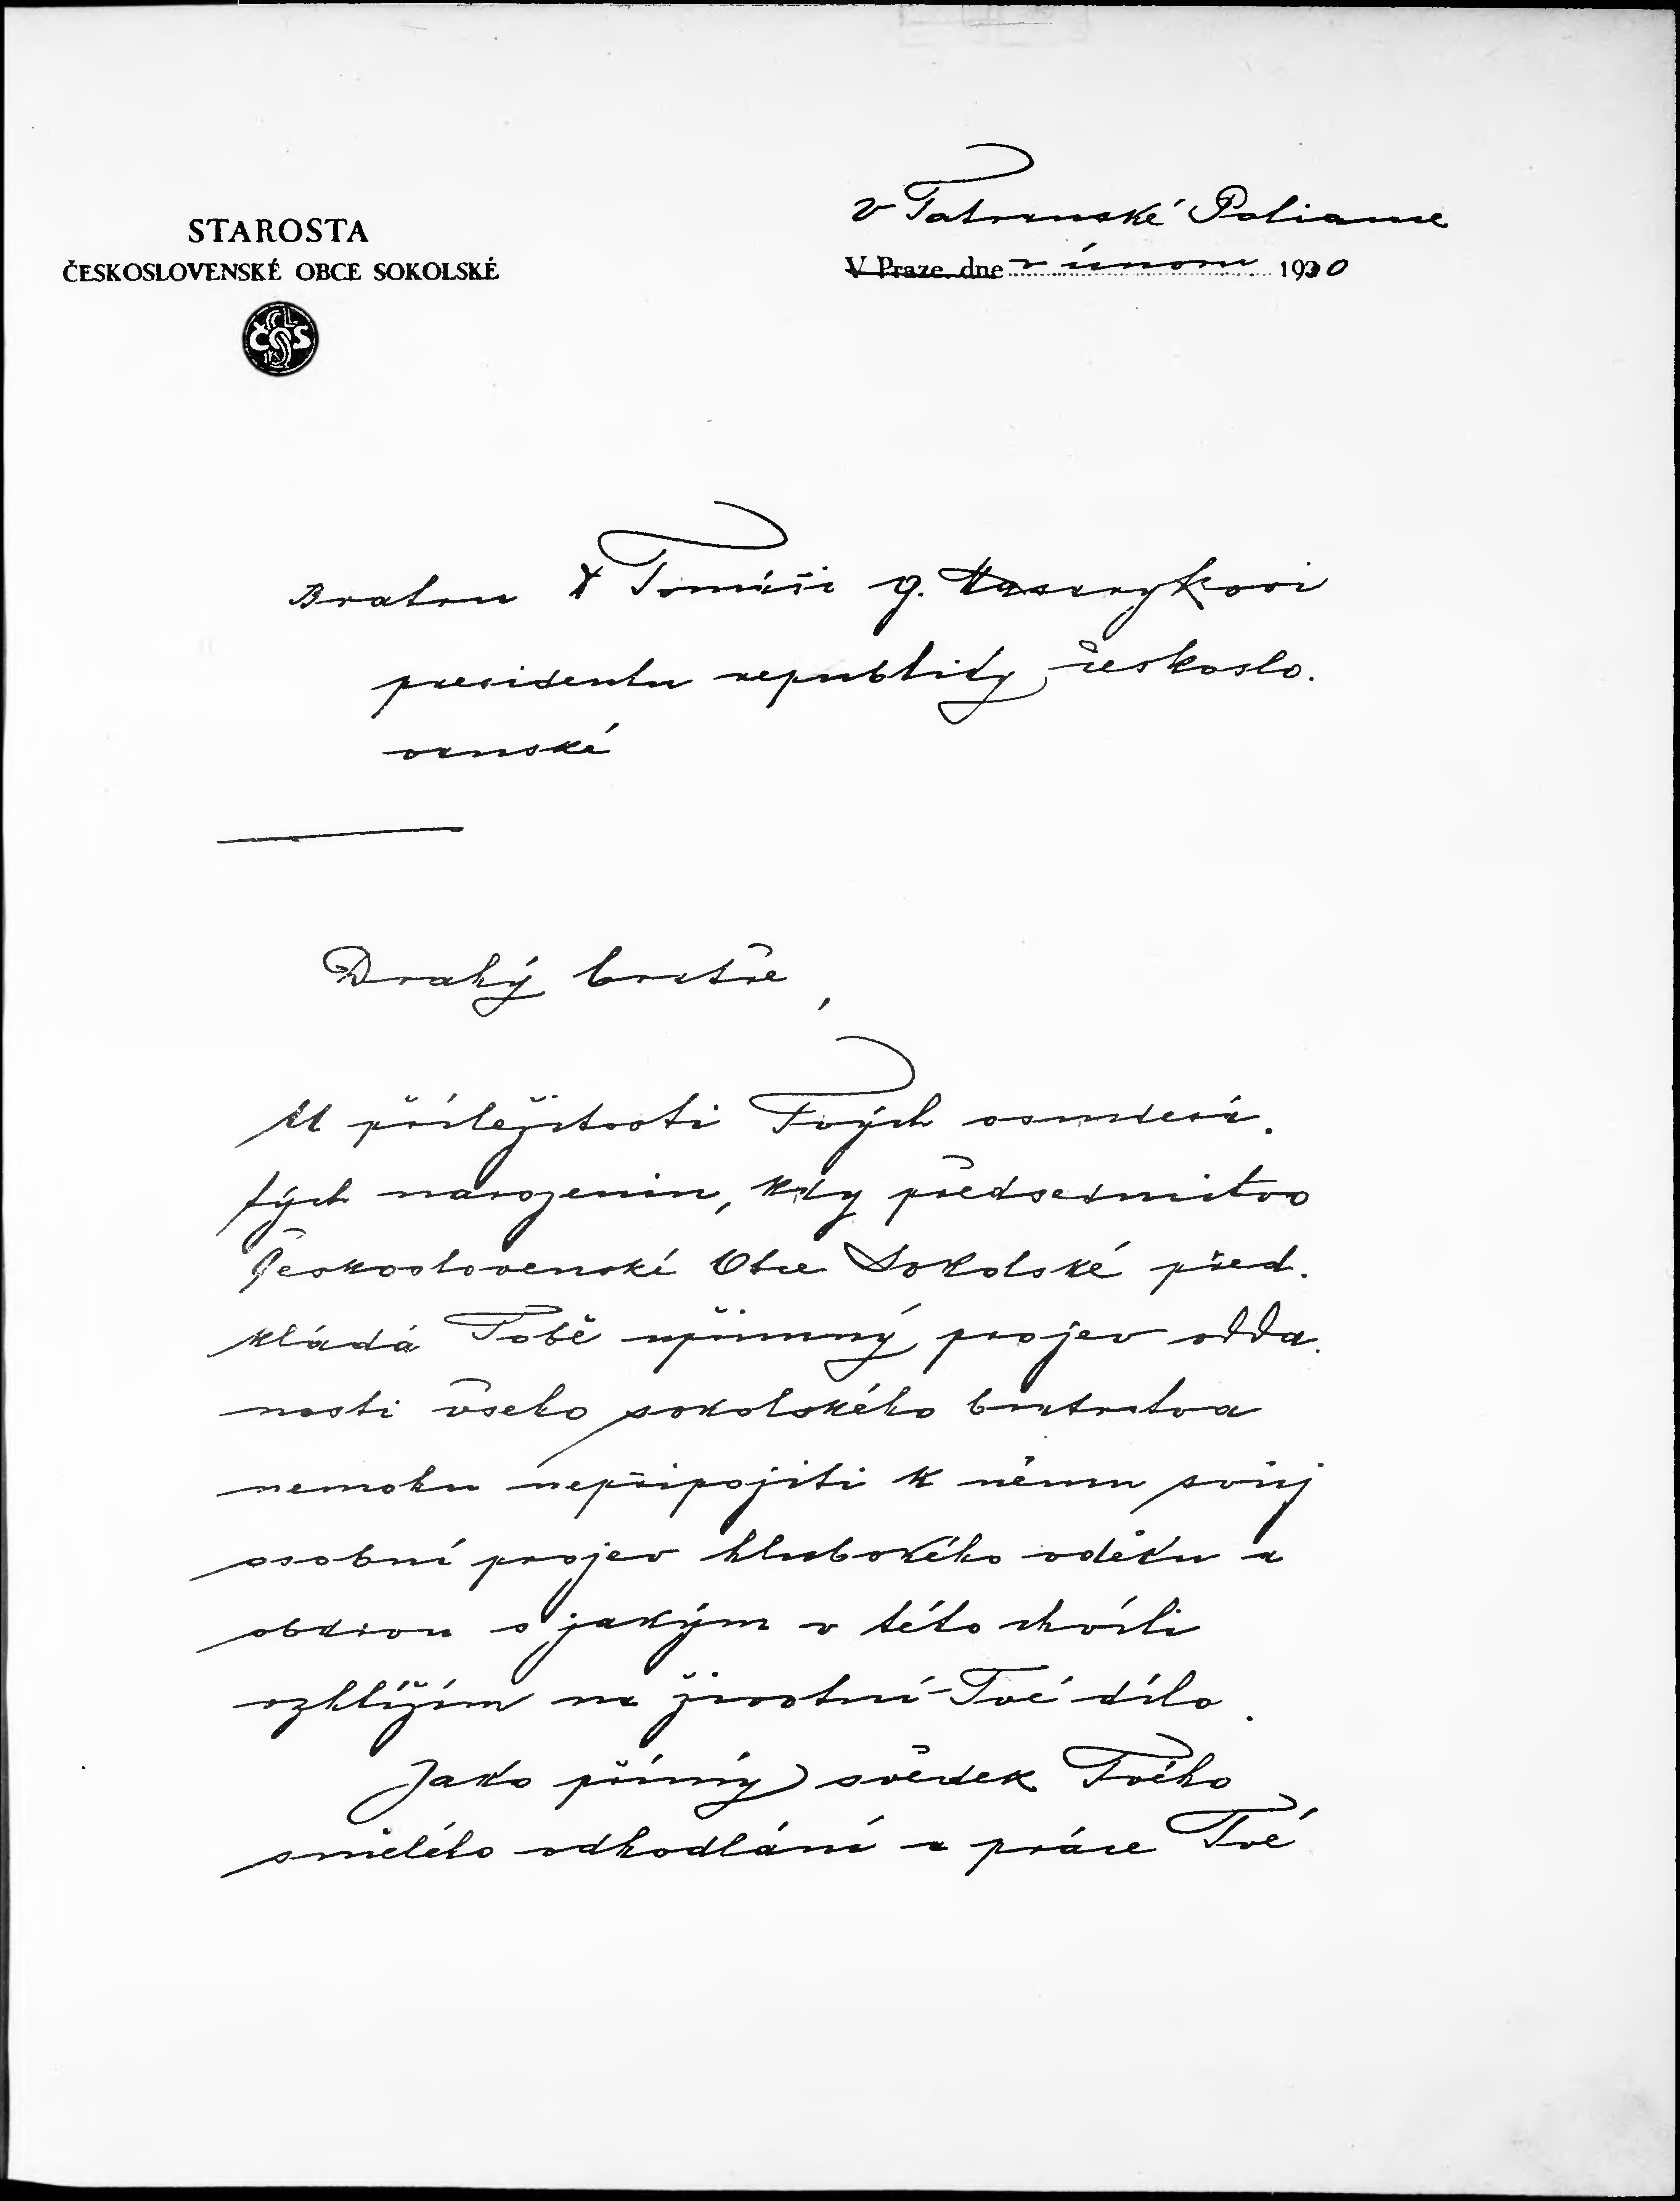 v Tatranské Polianne
STAROSTA
ČESKOSLOVENSKÉ OBCE SOKOLSKÉ
V Praze dne v únoru 1930
ČOS
Bratru Tomáši G. Masarykovi
presidentu republiky českoslo.
venské
Drahý bratře,
U příležitosti Tvých osmdesá.
tých narozenin, kdy předsednictvo
Československé Obce Sokolské před.
kládá Tobě upřímný projev odda.
nosti všeho sokolského bratrstva
nemohu nepřipojiti k němu svůj
osobní projev hlubokého vděku a
obdivu s jakým v této chvíli
vzhlížím na životní Tvé dílo.
Jako přímý svědek Tvého
smělého odhodlání a práce Tvé